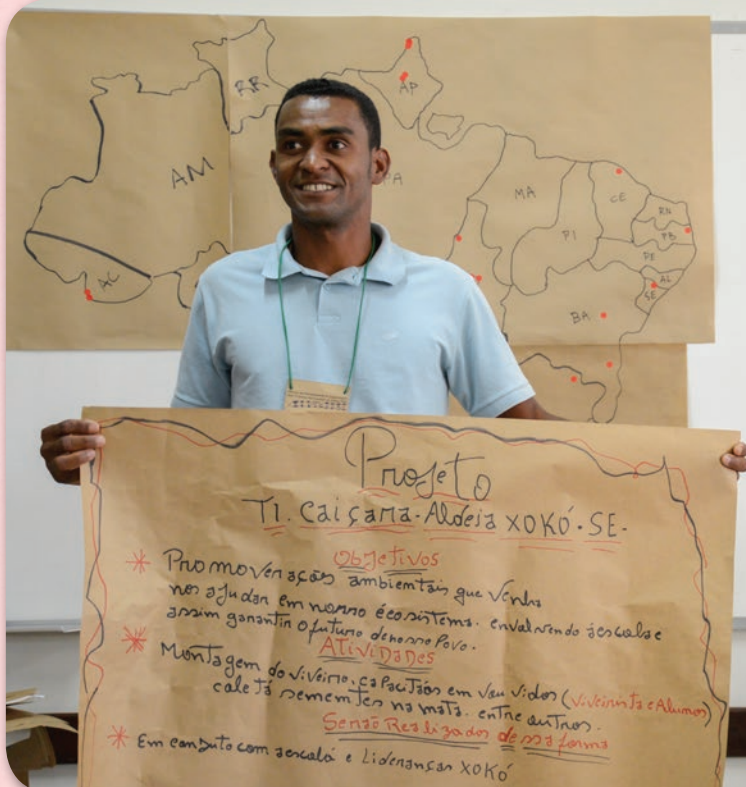 RR
AP
AM
PA
MA
CE
RN
PI
PB
PE
AL
SE
AC
BA
Projeto
TI. Caiçara-Aldeia XOKÓ-SE-
Objetivos
* Promover ações ambientais que venha
nos ajudar em nosso écosistema. envalvendo àescola e
assim garantir o futuro de nosso Povo.
ATiViDADES
* Montagem do viveiro, capacitãos em (viveirista e Alunos)
caletá sementes na mata. entre outros.
Serão Realizados dessa forma
* Em conjuto com aescolá e Lideranças XOKÓ